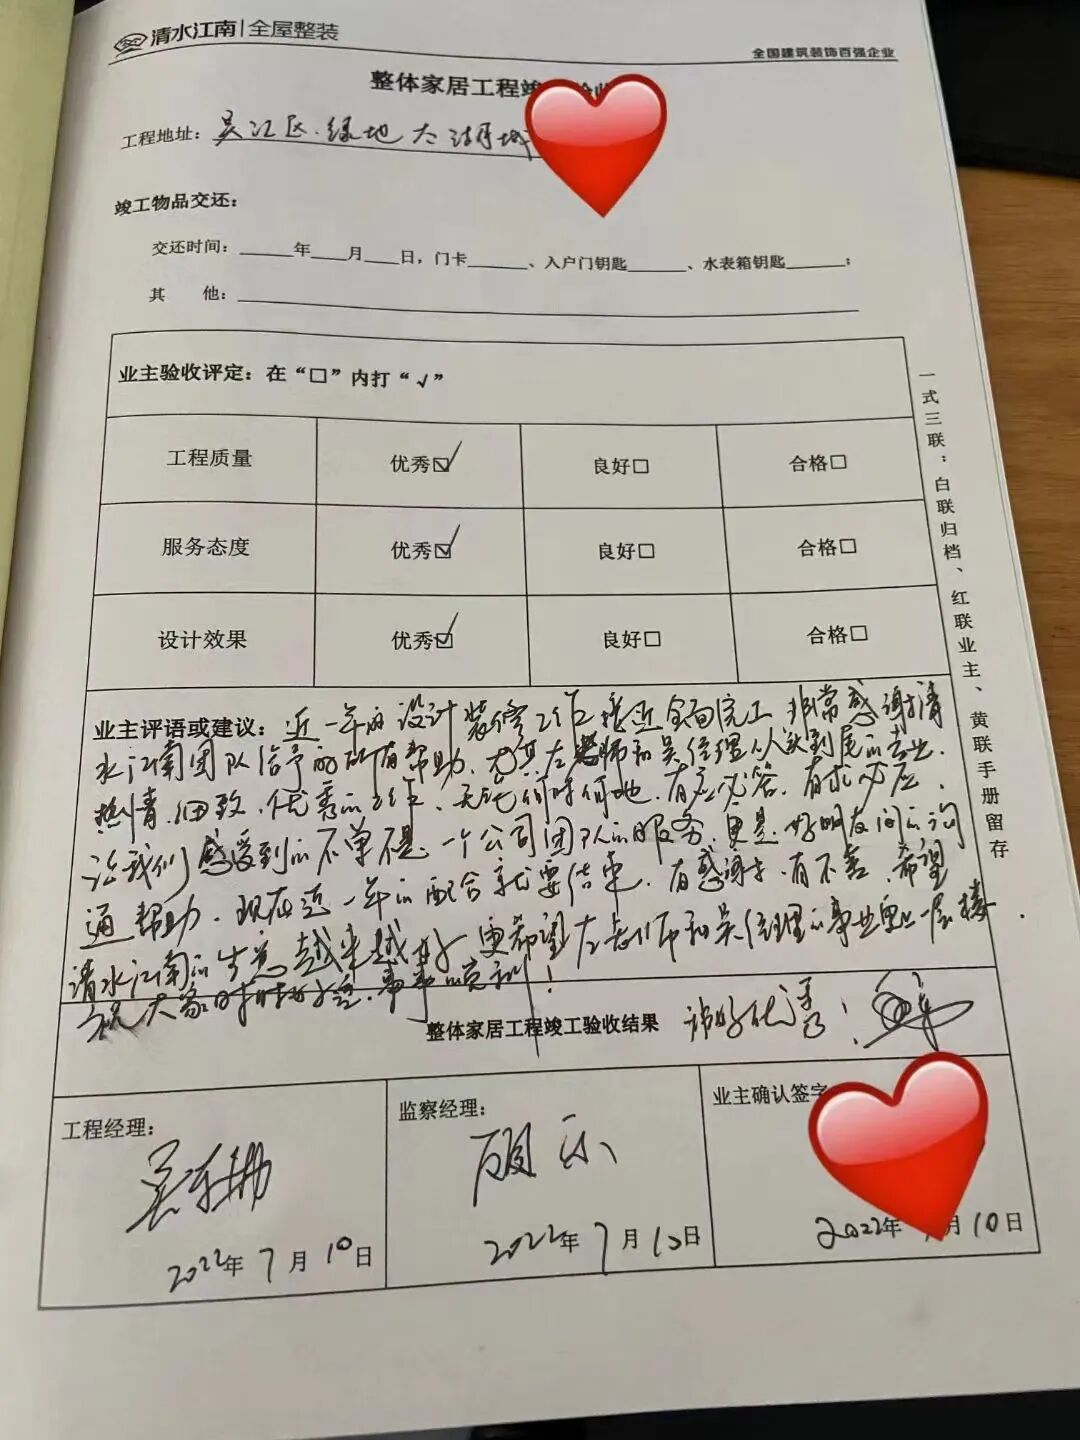 清水江南|全屋整装
全国建筑装饰百强企业
整体家居工程竣工验收
工程地址：吴江区·绿地太湖城
竣工物品交还：
交还时间：____年____月____日，门卡____、入户门钥匙____、水表箱钥匙____；
其 他：
业主验收评定：在“□”内打“√”
工程质量 优秀☑ 良好□ 合格□
服务态度 优秀☑ 良好□ 合格□
设计效果 优秀☑ 良好□ 合格□
业主评语或建议：近一年的设计装修工作接近全面完工，非常感谢清
水江南团队给予的所有帮助，尤其左老师和吴经理从头到尾的专业、
热情、细致、优秀的工作，无论何时何地，有应必答，有求必应，
让我们感受到的不单不是一个公司团队的服务，更是好朋友间的沟
通帮助。现在近一年的配合就要结束，有感谢，有不舍，希望
清水江南的生意越来越好，更希望左老师和吴经理的事业更上一层楼.
祝大家时时好运，事事顺利！
整体家居工程竣工验收结果 优秀！
工程经理：
2022年7月10日
监察经理：
顾乐
2022年7月10日
业主确认签字
2022年 月10日
一式三联：白联归档、红联业主、黄联手册留存